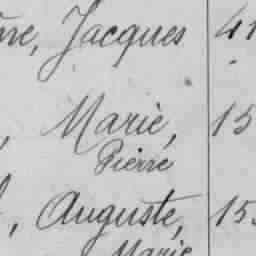 Jacques 41
, Marie, 15
Pierre
, Auguste, 15
Marie